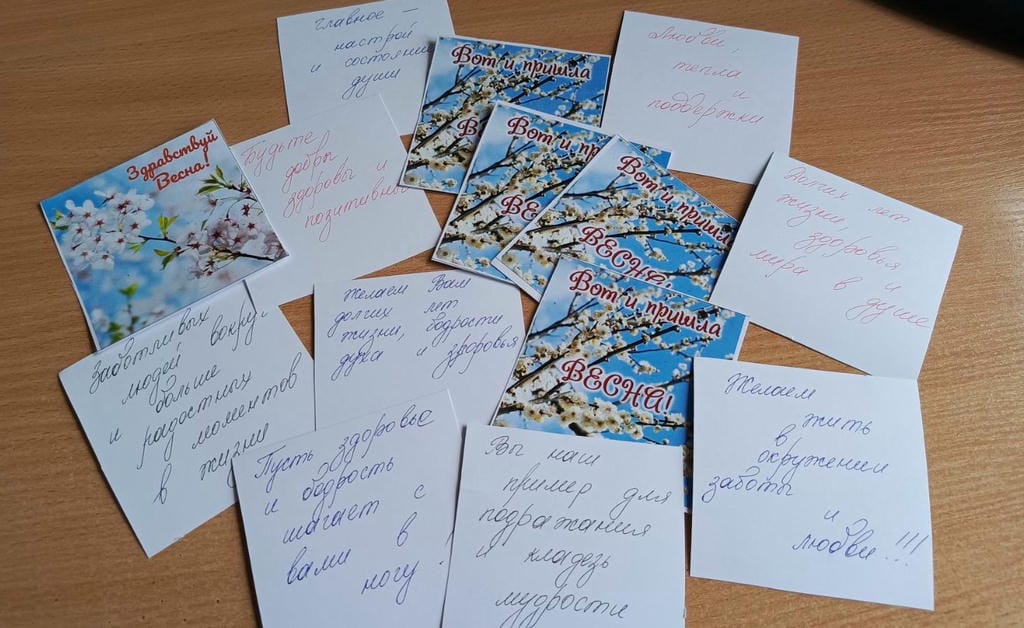 главное –
настрой
и состояние
души
Вот и пришла
Любви,
тепла
и
поддержки
Здравствуй
Весна!
Будьте
добры
здоровы и
позитивны
Вот и пришла
Вот и пришла
ВЕСНА!
Долгих лет
жизни,
здоровья
и
мира в
душе
Желаем Вам
долгих лет
жизни, бодрости
духа и здоровья
Вот и пришла
ВЕСНА!
Заботливых
людей вокруг
и больше
радостных
моментов
в жизни
Пусть здоровье
и бодрость
шагает с
вами в
ногу!
Вы наш
пример для
подражания
и кладезь
мудрости
Желаем
жить
в
окружении
заботы
и
любви!!!